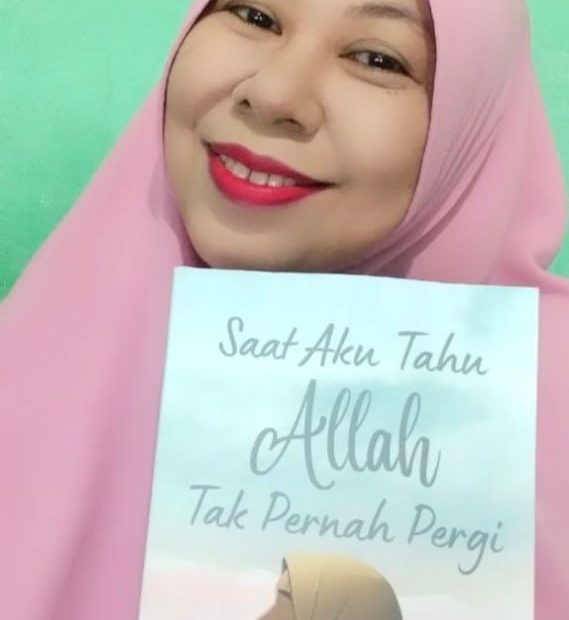 Saat Aku Tahu
Allah
Tak Pernah Pergi